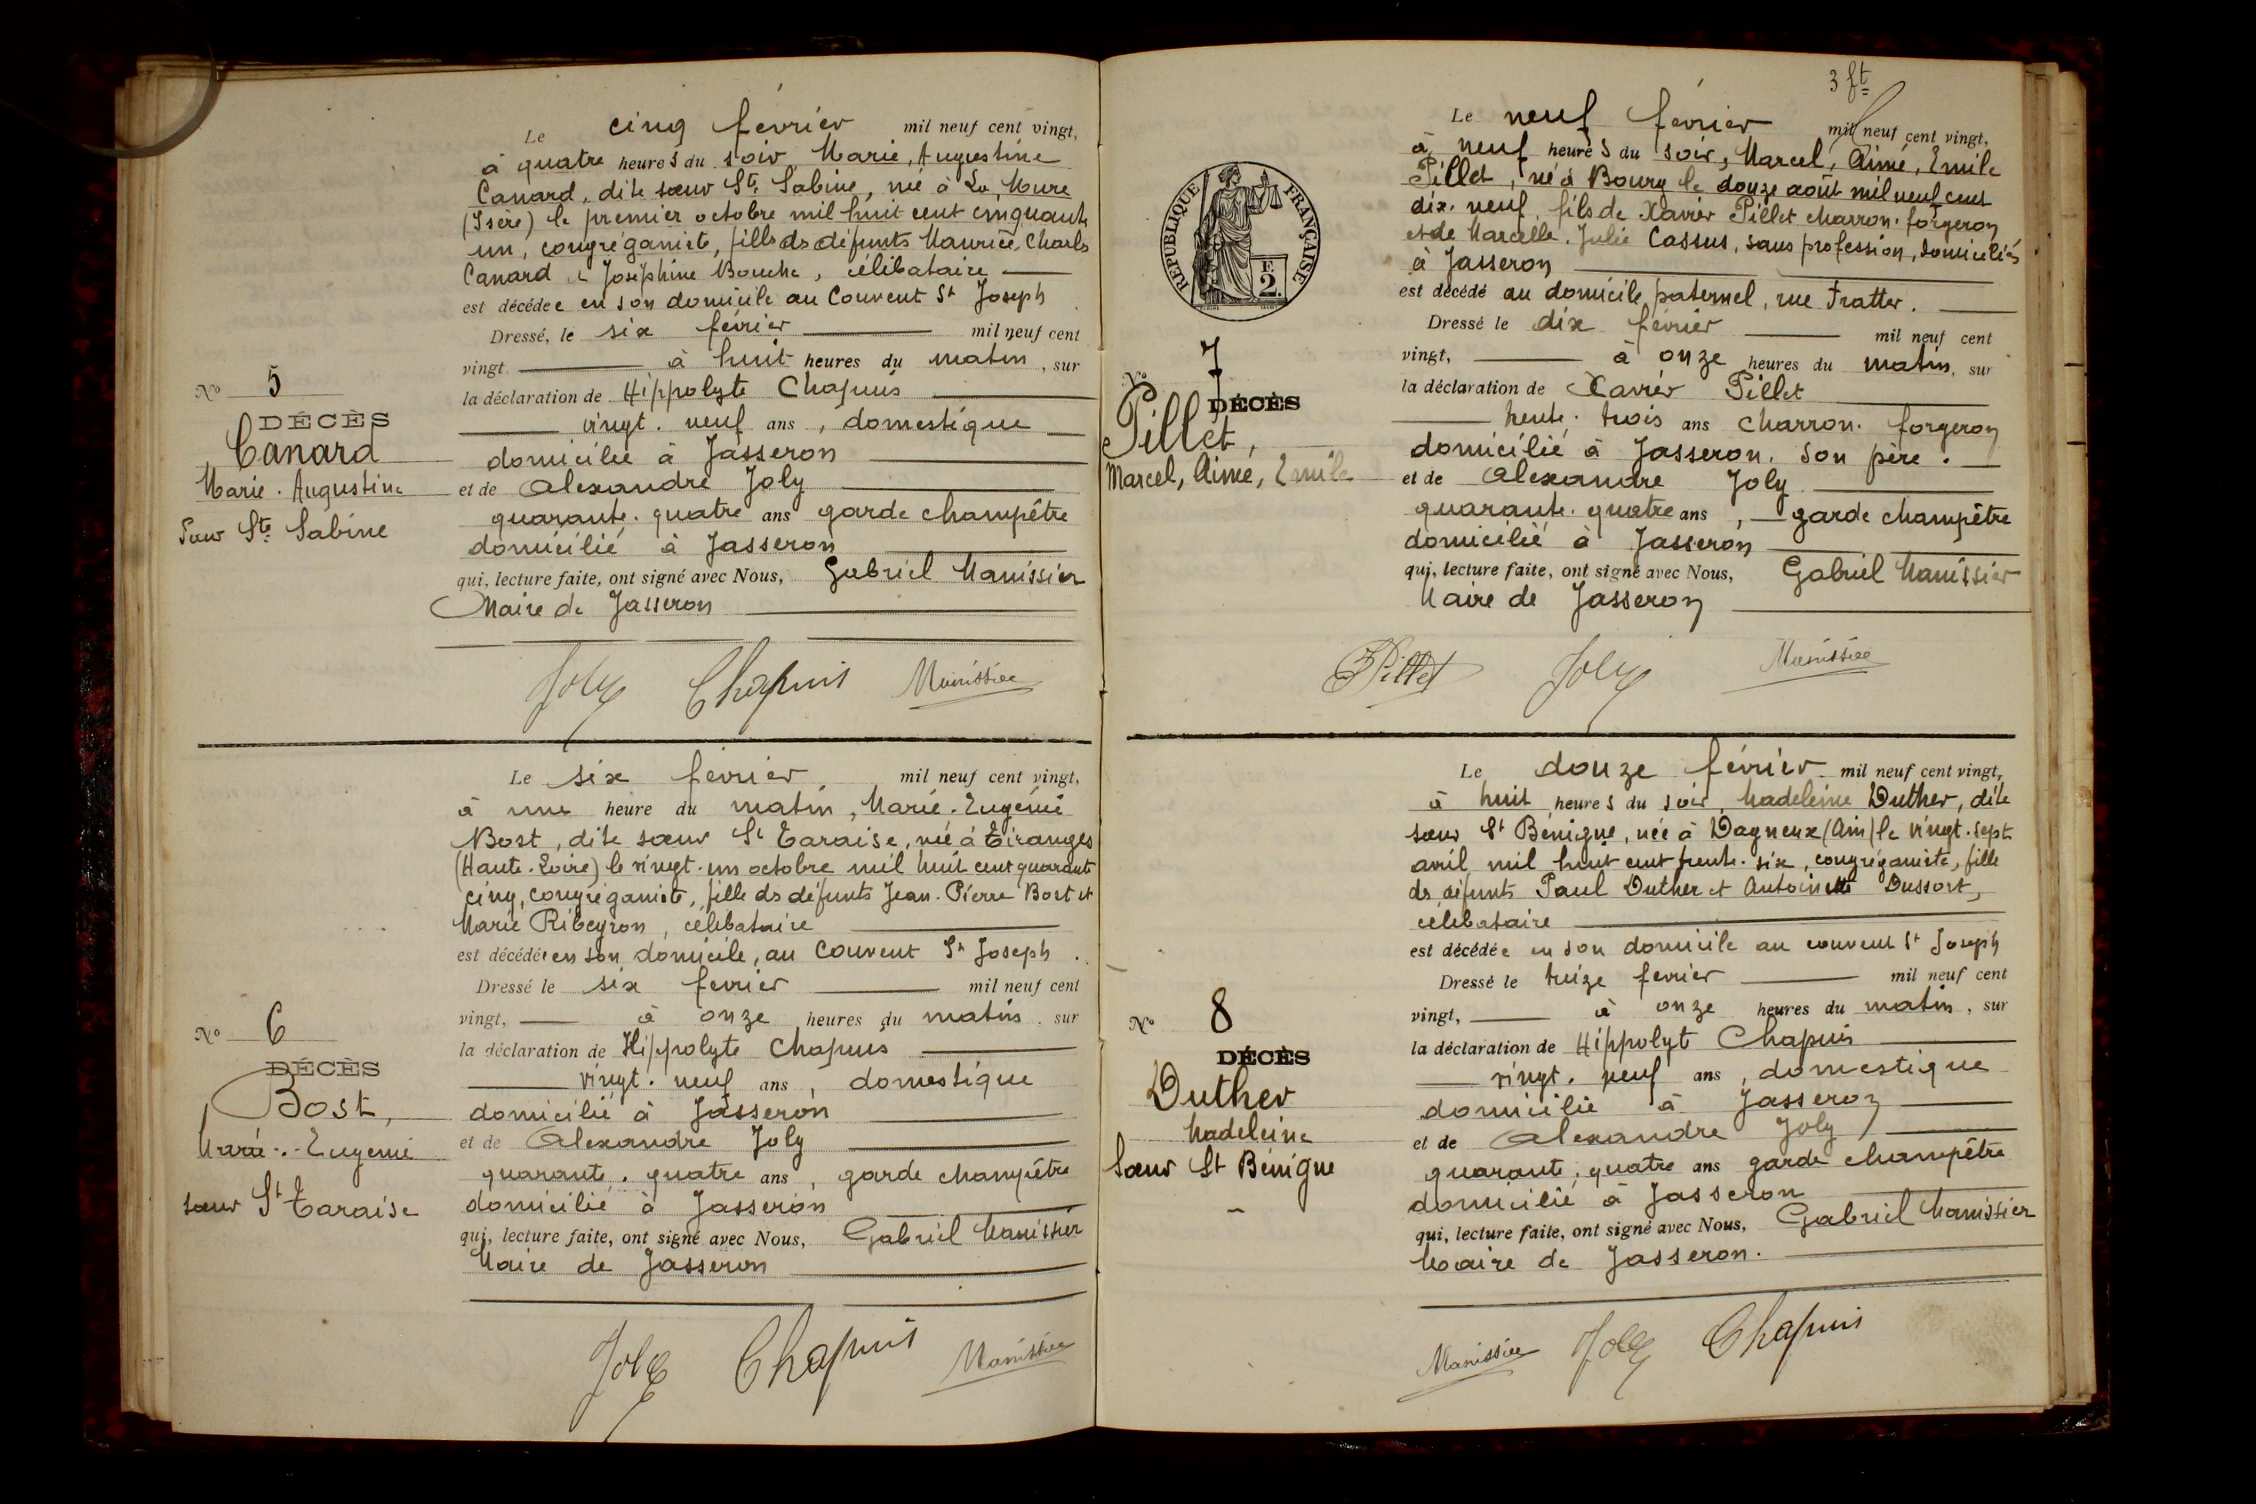 Le cinq février mil neuf cent vingt,
à quatre heures du soir Marie, Augustine
Canard, dite sœur Ste Sabine, née à La Mure
(Isère) le premier octobre mil huit cent cinquante
un, congréganiste, fille ds défunts Maurice, Charles
Canard & Joséphine Bouche, célibataire
est décédée en son domicile au Couvent St Joseph
Dressé, le six février mil neuf cent
vingt à huit heures du matin, sur
la déclaration de Hippolyte Chapuis
vingt. neuf ans, domestique
domicilié à Jasseron
et de Alexandre Joly
quarante. quatre ans garde champêtre
domicilié à Jasseron
qui, lecture faite, ont signé avec Nous, Gabriel Manissier
Maire de Jasseron
Joly Chapuis Manissier
No 5
DÉCÈS
Canard
Marie. Augustine
Sœur Ste Sabine
Le six février mil neuf cent vingt,
à une heure du matin, Marie. Eugénie
Bost, dite sœur St Taraise, née à Tiranges
(Haute. Loire) le vingt. un octobre mil huit cent quarante
cinq, congréganiste, fille ds défunts Jean. Pierre Bost et
Marie Ribeyron, célibataire
est décédée en son domicile, au Couvent St Joseph.
Dressé le six février mil neuf cent
vingt, à onze heures du matin, sur
la déclaration de Hippolyte Chapuis
vingt. neuf ans, domestique
domicilié à Jasseron
et de Alexandre Joly
quarante. quatre ans, garde champêtre
domicilié à Jasseron
qui, lecture faite, ont signé avec Nous, Gabriel Manissier
Maire de Jasseron
Joly Chapuis Manissier
No 6
DÉCÈS
Bost,
Marie. Eugénie
sœur St Taraise
3 ft
Le neuf février mil neuf cent vingt,
à neuf heures du soir, Marcel, Aimé, Emile
Pillet, né à Bourg le douze août mil neuf cent
dix. neuf, fils de Xavier Pillet charron. forgeron
et de Marcelle. Julie Cassus, sans profession, domiciliés
à Jasseron
est décédé au domicile paternel, rue Fratter.
Dressé le dix février mil neuf cent
vingt, à onze heures du matin, sur
la déclaration de Xavier Pillet
trente. trois ans charron. forgeron
domicilié à Jasseron. Son père.
et de Alexandre Joly
quarante. quatre ans, garde champêtre
domicilié à Jasseron
qui, lecture faite, ont signé avec Nous, Gabriel Manissier
Maire de Jasseron
Pillet Joly Manissier
RÉPUBLIQUE FRANÇAISE
E
2
No 7
DÉCÈS
Pillet,
Marcel, Aimé, Emile
Le douze février mil neuf cent vingt,
à huit heures du soir, Madeleine Duther, dite
sœur St Bénigne, née à Dagneux (Ain) le vingt. sept
avril mil huit cent trente. six, congréganiste, fille
ds défunts Paul Duther et Antoinette Dussort,
célibataire
est décédée en son domicile au couvent St Joseph
Dressé le treize février mil neuf cent
vingt, à onze heures du matin, sur
la déclaration de Hippolyte Chapuis
vingt. neuf ans, domestique
domicilié à Jasseron
et de Alexandre Joly
quarante. quatre ans garde champêtre
domicilié à Jasseron
qui, lecture faite, ont signé avec Nous, Gabriel Manissier
Maire de Jasseron.
Manissier Joly Chapuis
No 8
DÉCÈS
Duther
Madeleine
Sœur St Bénigne